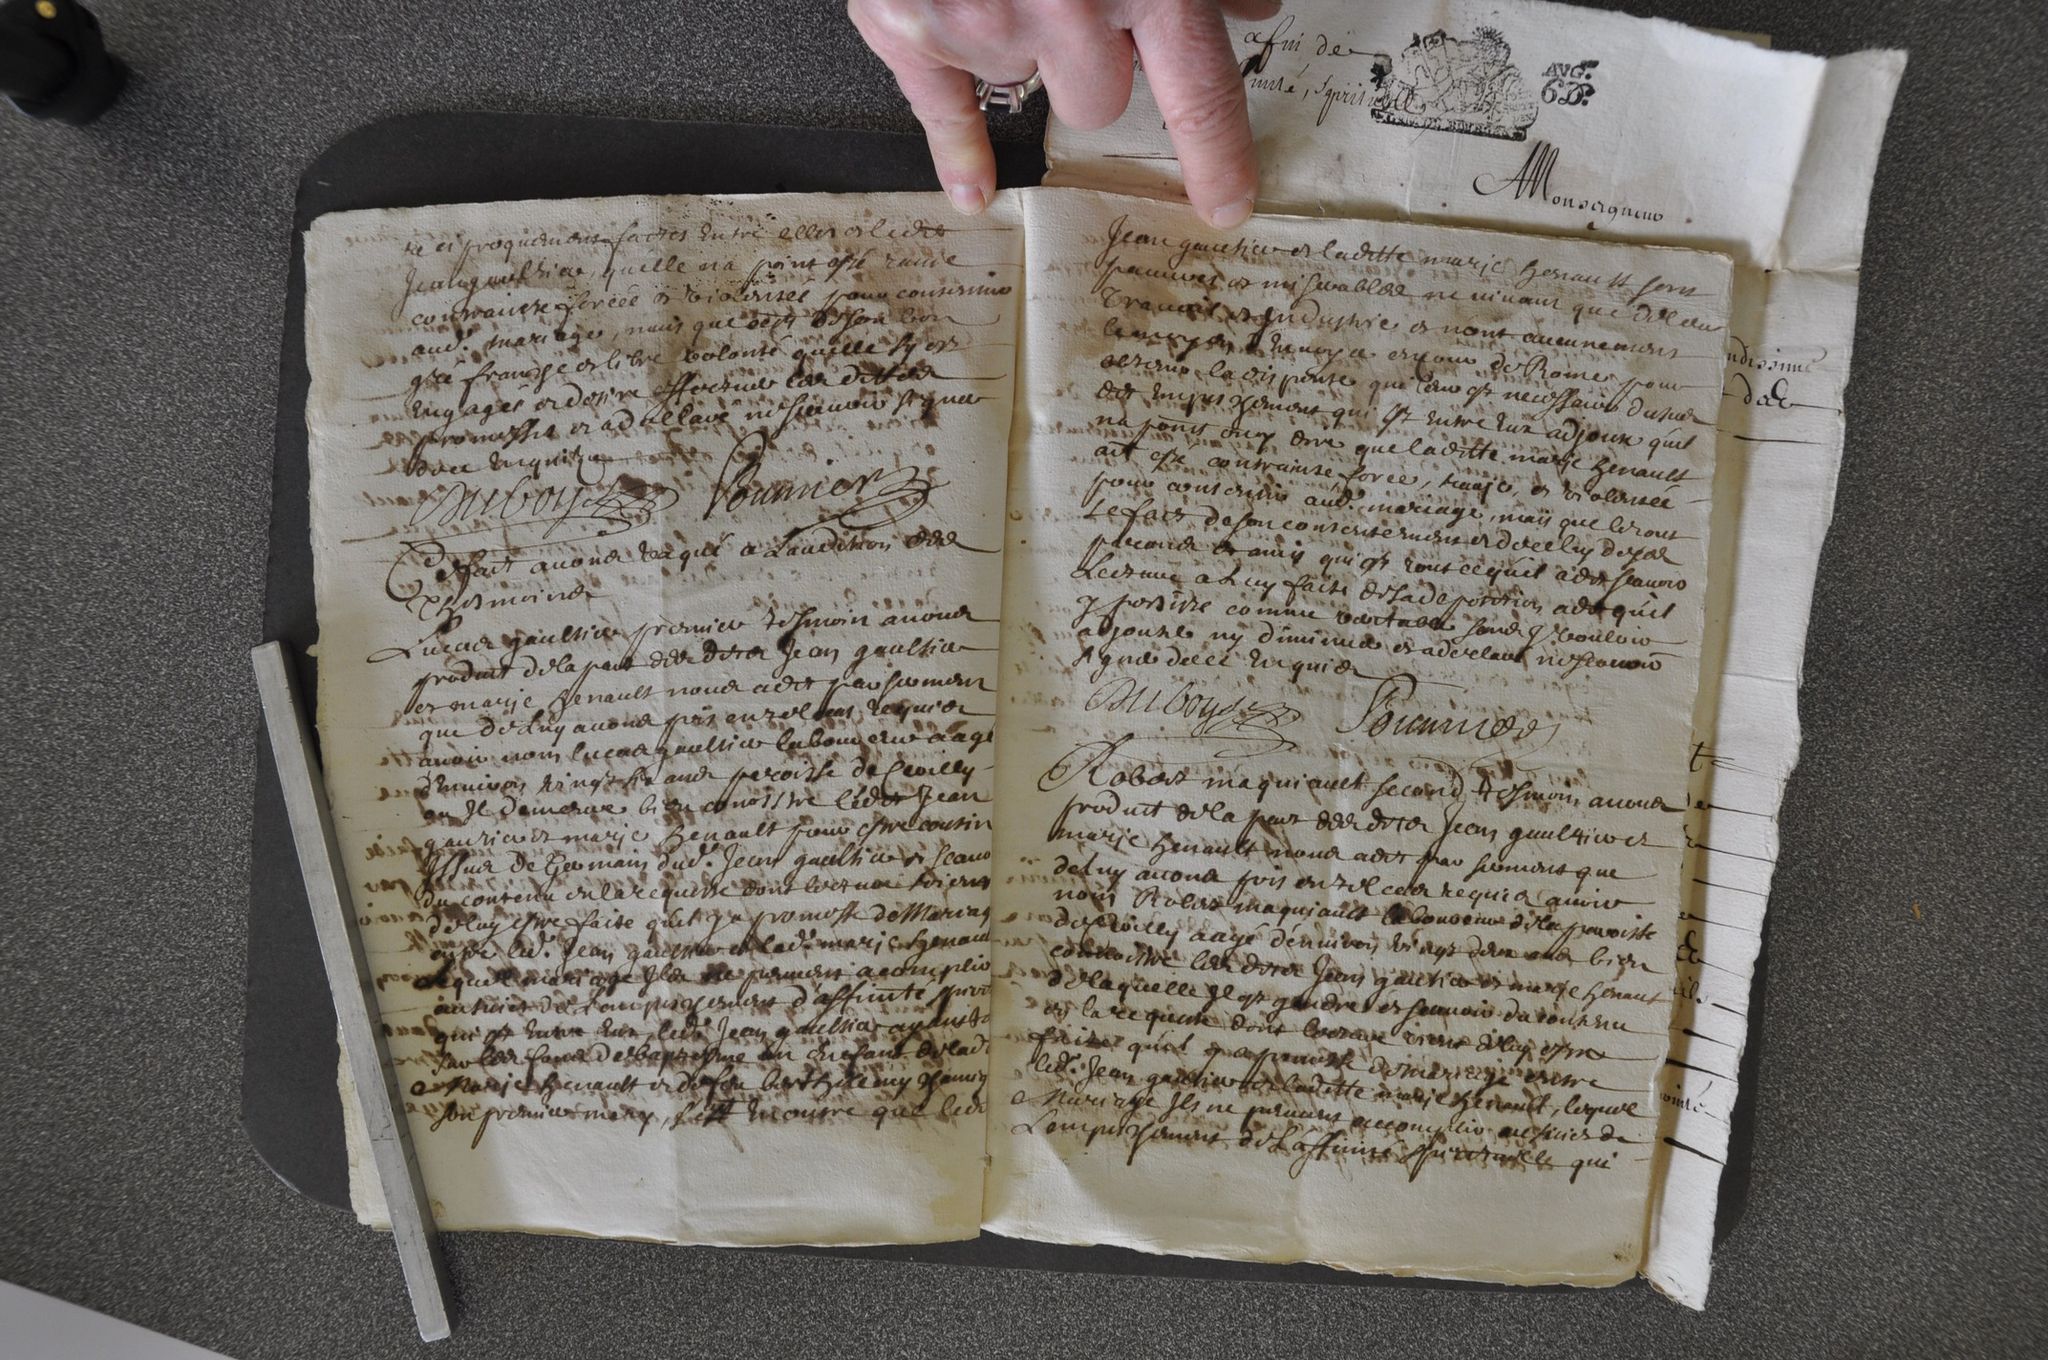 afin de
Monseigneur
AVG.
6 D.
re et proquemant faites entre elle et ledit
Jean gaultier, quelle n'a point esté ravie
contrainte forcée et violentée pour consentir
aud. mariage, mais que cest de son bon
gré franche et libre volonté quelle sy est
engagée et desire effectuer lesdittes
promesses et a declaré ne scavoir signer
de ce enquise
Duboys Fournier
Et de fait avons vaqué a l'audition des
tesmoins
Lucas gaultier premier tesmoin a nous
produit de la part desdits Jean gaultier
et marie henault nous a dit par serment
que de luy avons pris en tel cas requis
avoir nom lucas gaultier laboureur aagé
d'environ vingt six ans paroisse de
ou il demeure bien conoistre ledit Jean
gaultier et marie henault pour estre cousin
issus de Germain dud. Jean gaultier et scavoir
du contenu en la requeste dont lecture vient
de luy estre faite qu'il y a promesse de Mariage
entre led. Jean gaultier et lad. marie henault
lequel mariage ils ne peuvent acomplir
au sujet de l'empeschement d'affinité spirit
qui est entre eux, led. Jean gaultier ayant
sur les fons de baptesme un enfant de lad
Marie henault et de feu barthelemy
son premier mary, sçait en outre que led
Jean gaultier et laditte marie henault sont
pauvres et miserables ne vivant que de leur
travail et industrie et n'ont aucunement
le moyen d'envoyer en cour de Rome pour
obtenir la dispense que leur est necessaire dusdit
dit empeschement qui est entre eux adjoute qu'il
n'a point ouy dire que laditte marie henault
ait esté contrainte, forcée, ravie, et violentée
pour consentir aud. mariage, mais que le tout
se fait de son consentement et de celuy de ses
parens et amis qui est tout ce qu'il a dit scavoir
Lecture a luy faite de sa deposition a dit qu'il
y persiste comme veritable sans y vouloir
adjouster ny diminuer et a declaré ne scavoir
signer de ce enquis
Duboys Fournier
Robert maquiault second tesmoin a nous
produit de la part desdits Jean gaultier et
marie henault nous a dit par serment que
de luy avons pris en tel cas requis avoir
nom Robert maquiault laboureur de la paroisse
de aagé d'environ vingt deux ans bien
connoistre lesdits Jean gaultier et marie henault
de laquelle il est gendre et scavoir du contenu
en la requeste dont lecture vient de luy estre
faite qu'il y a promesse de mariage entre
led. Jean gaultier et laditte marie henault, lequel
Mariage ils ne peuvent accomplir au sujet de
l'empeschement de l'affinité spirituelle qui